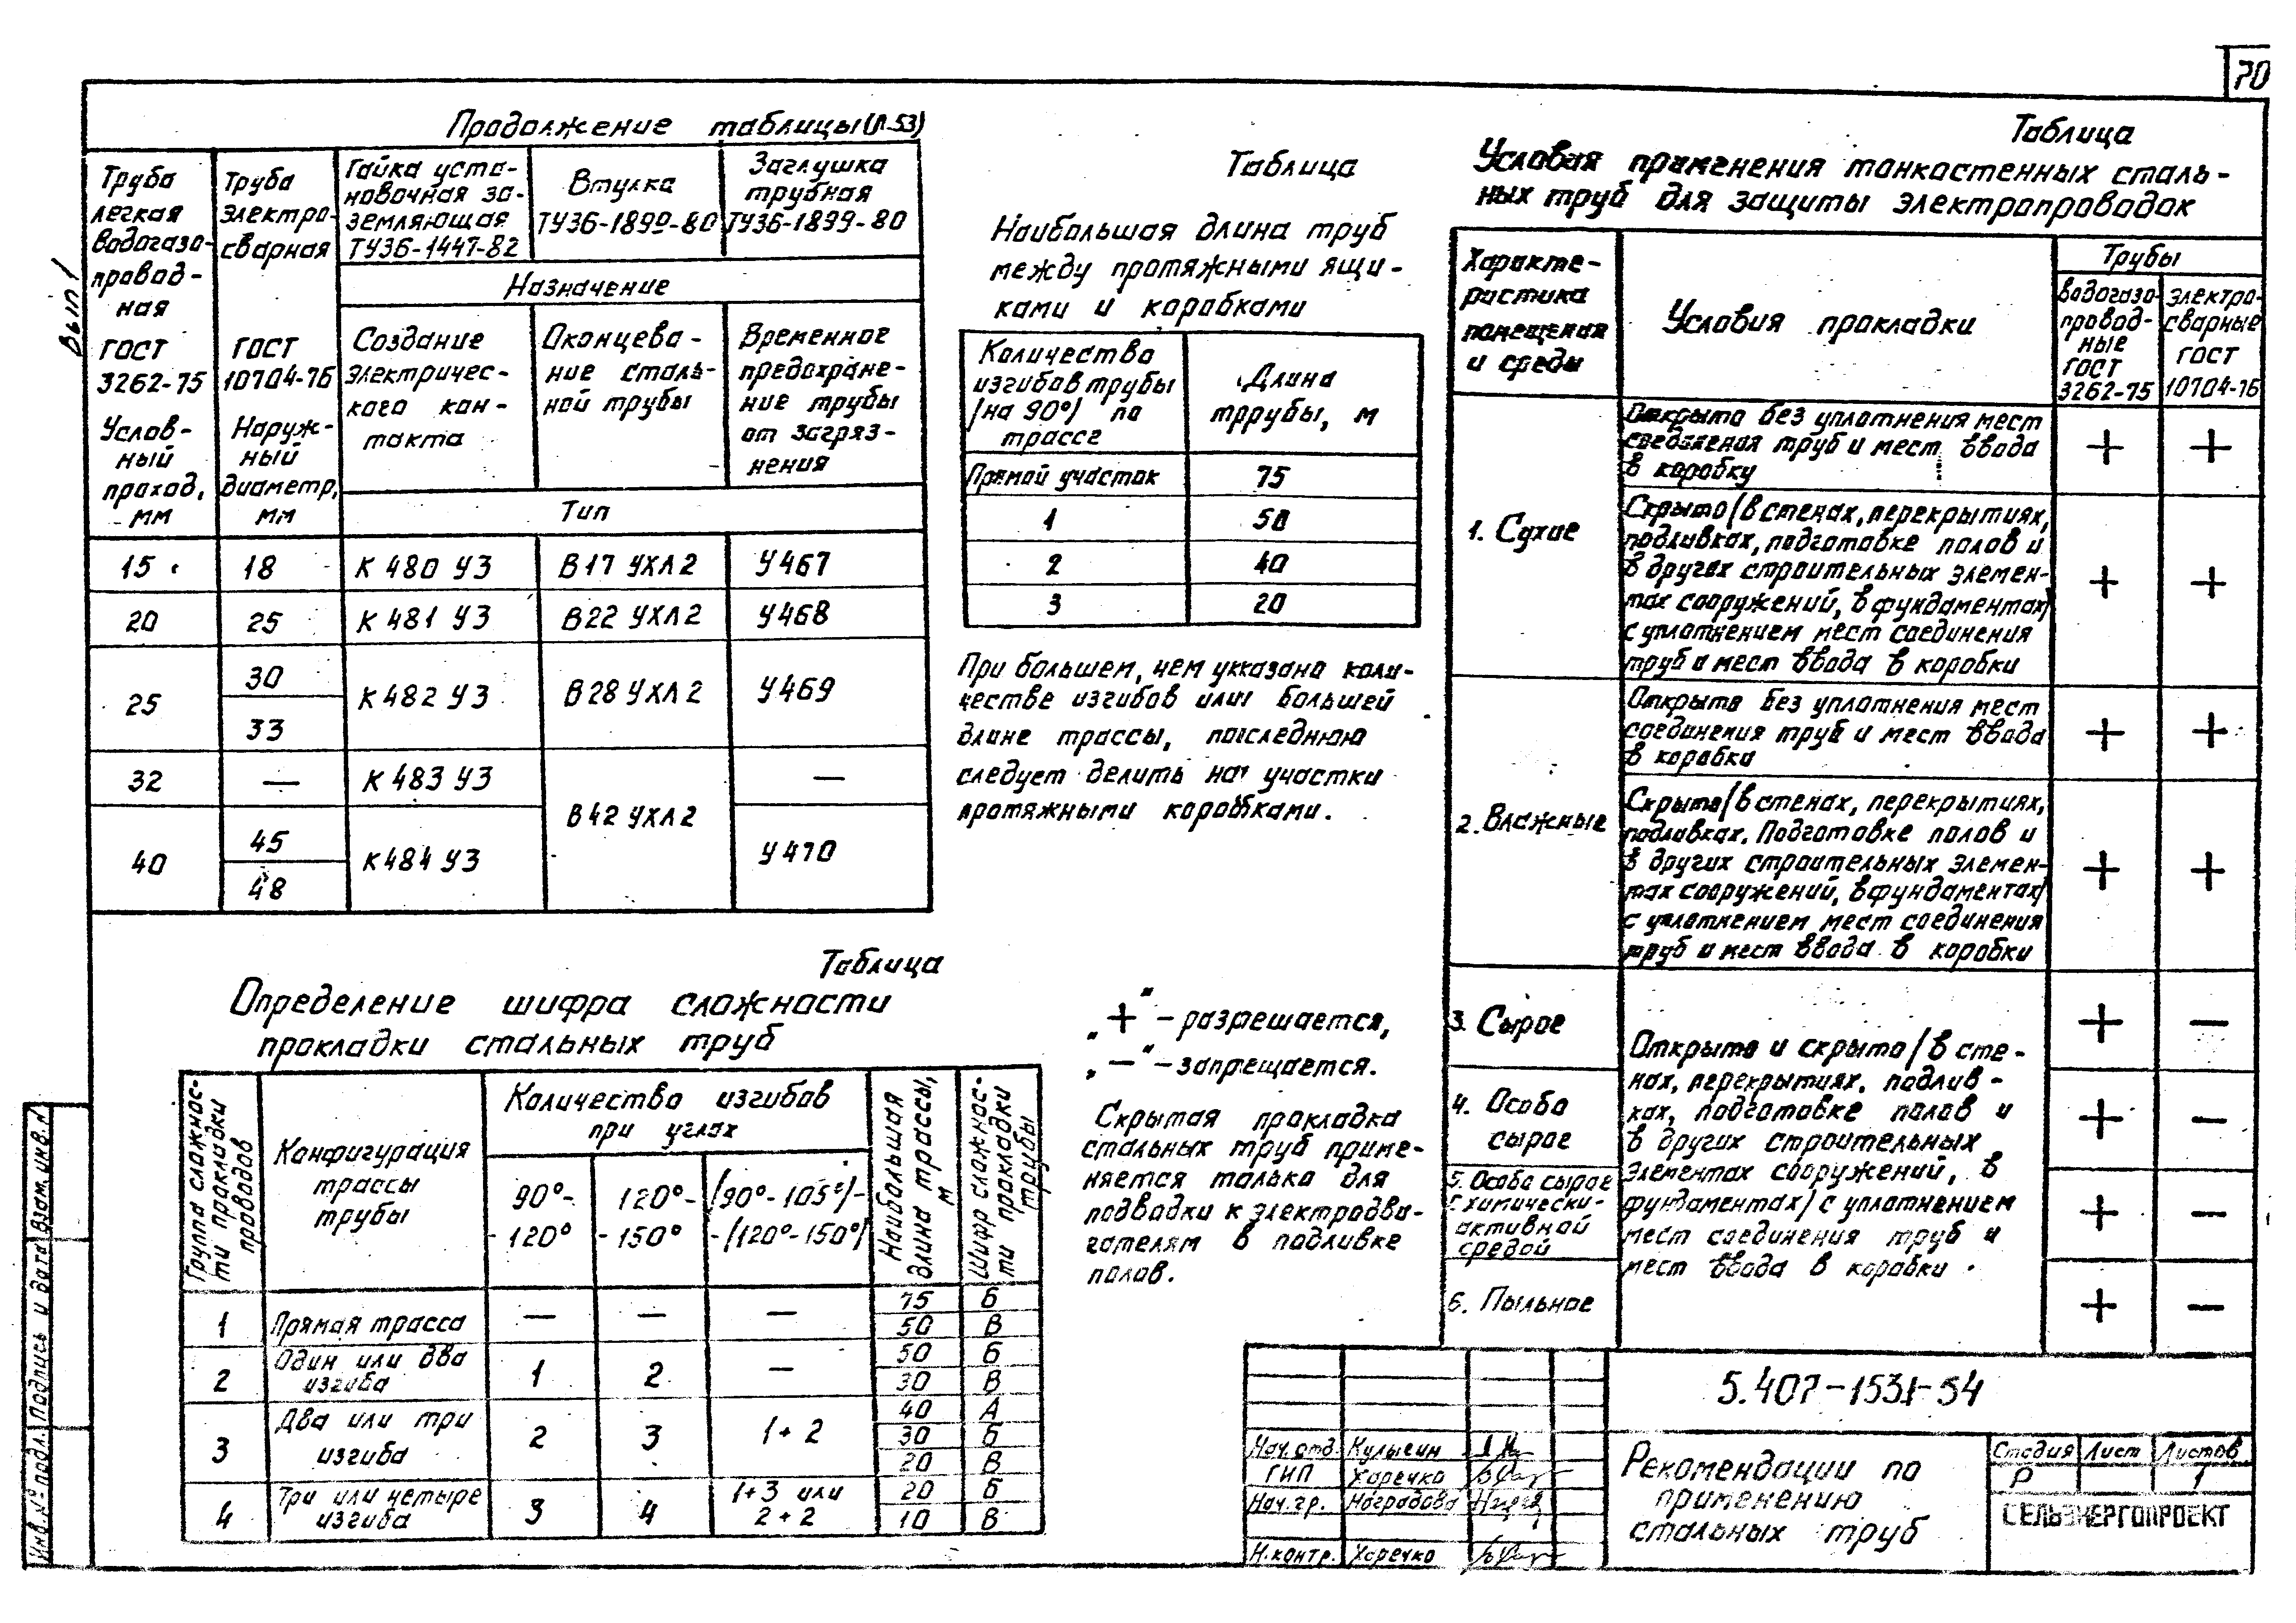 70
Вып 1
Продолжение таблицы (л.53)
Труба легкая водогазо-проводная ГОСТ 3262-75 Условный проход, мм
Труба электро-сварная ГОСТ 10704-76 Наружный диаметр, мм
Гайка уста-
новочная за-
земляющая
ТУ36-1447-82
Втулка
ТУ36-1899-80
Заглушка
трубная
ТУ36-1899-80
Назначение
Создание
электричес-
кого кон-
такта
Оконцева-
ние сталь-
ной трубы
Временное
предохране-
ние трубы
от загряз-
нения
Тип
15 18 К 480 У3 В17 УХЛ2 У467
20 25 К 481 У3 В22 УХЛ2 У468
25 30 К 482 У3 В28 УХЛ2 У469
33
32 — К 483 У3 В42 УХЛ2 —
40 45 К484 У3 У470
48
Таблица
Определение шифра сложности
прокладки стальных труб
Группа сложнос-
ти прокладки
проводов
Конфигурация
трассы
трубы
Количество изгибов
при углах
90°-
-120°
120°-
-150°
(90°-105°)-
-(120°-150°)
Наибольшая
длина трассы,
м
Шифр сложнос-
ти прокладки
трубы
1 Прямая трасса — — — 75 Б
50 В
2 Один или два
изгиба 1 2 — 50 Б
30 В
3 Два или три
изгиба 2 3 1+2 40 А
30 Б
20 В
4 Три или четыре
изгиба 3 4 1+3 или
2+2 20 Б
10 В
Таблица
Наибольшая длина труб
между протяжными ящи-
ками и коробками
Количество
изгибов трубы
(на 90°) по
трассе
Длина
тррубы, м
Прямой участок 75
1 50
2 40
3 20
При большем, чем укказано коли-
честве изгибов или большей
длине трассы, последнюю
следует делить на участки
протяжными коробками.
„+“ - разрешается,
„—“ - запрещается.
Скрытая прокладка
стальных труб приме-
няется только для
подводки к электродви-
гателям в подливке
полов.
Таблица
Условия применения тонкостенных сталь-
ных труб для защиты электропроводок
Характе-
ристика
помещения
и среды
Условия прокладки
Трубы
водогазо-
провод-
ные
ГОСТ
3262-75
электро-
сварные
ГОСТ
10704-76
1. Сухое
Открыто без уплотнения мест
соединения труб и мест ввода
в коробку
+ +
Скрыто (в стенах, перекрытиях,
подливках, подготовке полов и
в других строительных элемен-
тах сооружений, в фундаментах)
с уплотнением мест соединения
труб и мест ввода в коробки
+ +
2. Влажные
Открыто без уплотнения мест
соединения труб и мест ввода
в коробки
+ +
Скрыто (в стенах, перекрытиях,
подливках. Подготовке полов и
в других строительных элемен-
тах сооружений, в фундаментах)
с уплотнением мест соединения
труб и мест ввода в коробки
+ +
3. Сырое + —
4. Особо
сырое + —
5. Особо сырое
с химически-
активной
средой + —
6. Пыльное + —
Открыто и скрыто (в сте-
нах, перекрытиях, подлив-
ках, подготовке полов и
в других строительных
элементах сооружений, в
фундаментах) с уплотнением
мест соединения труб и
мест ввода в коробки.
5.407-153.1-54
Нач. отд. Кулыгин
ГИП Харечко
Нач. гр. Наградова
Н. контр. Харечко
Рекомендации по
применению
стальных труб
Стадия Лист Листов
Р 1
СЕЛЬЭНЕРГОПРОЕКТ
Инв.№ подл. Подпись и дата Взам. инв. №